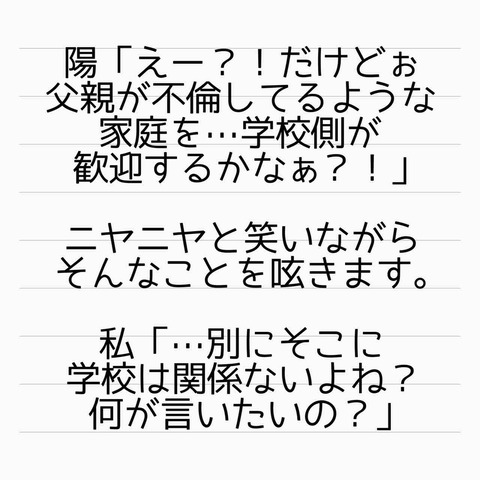 陽「えー？！だけどぉ
父親が不倫してるような
家庭を…学校側が
歓迎するかなぁ？！」
ニヤニヤと笑いながら
そんなことを呟きます。
私「…別にそこに
学校は関係ないよね？
何が言いたいの？」